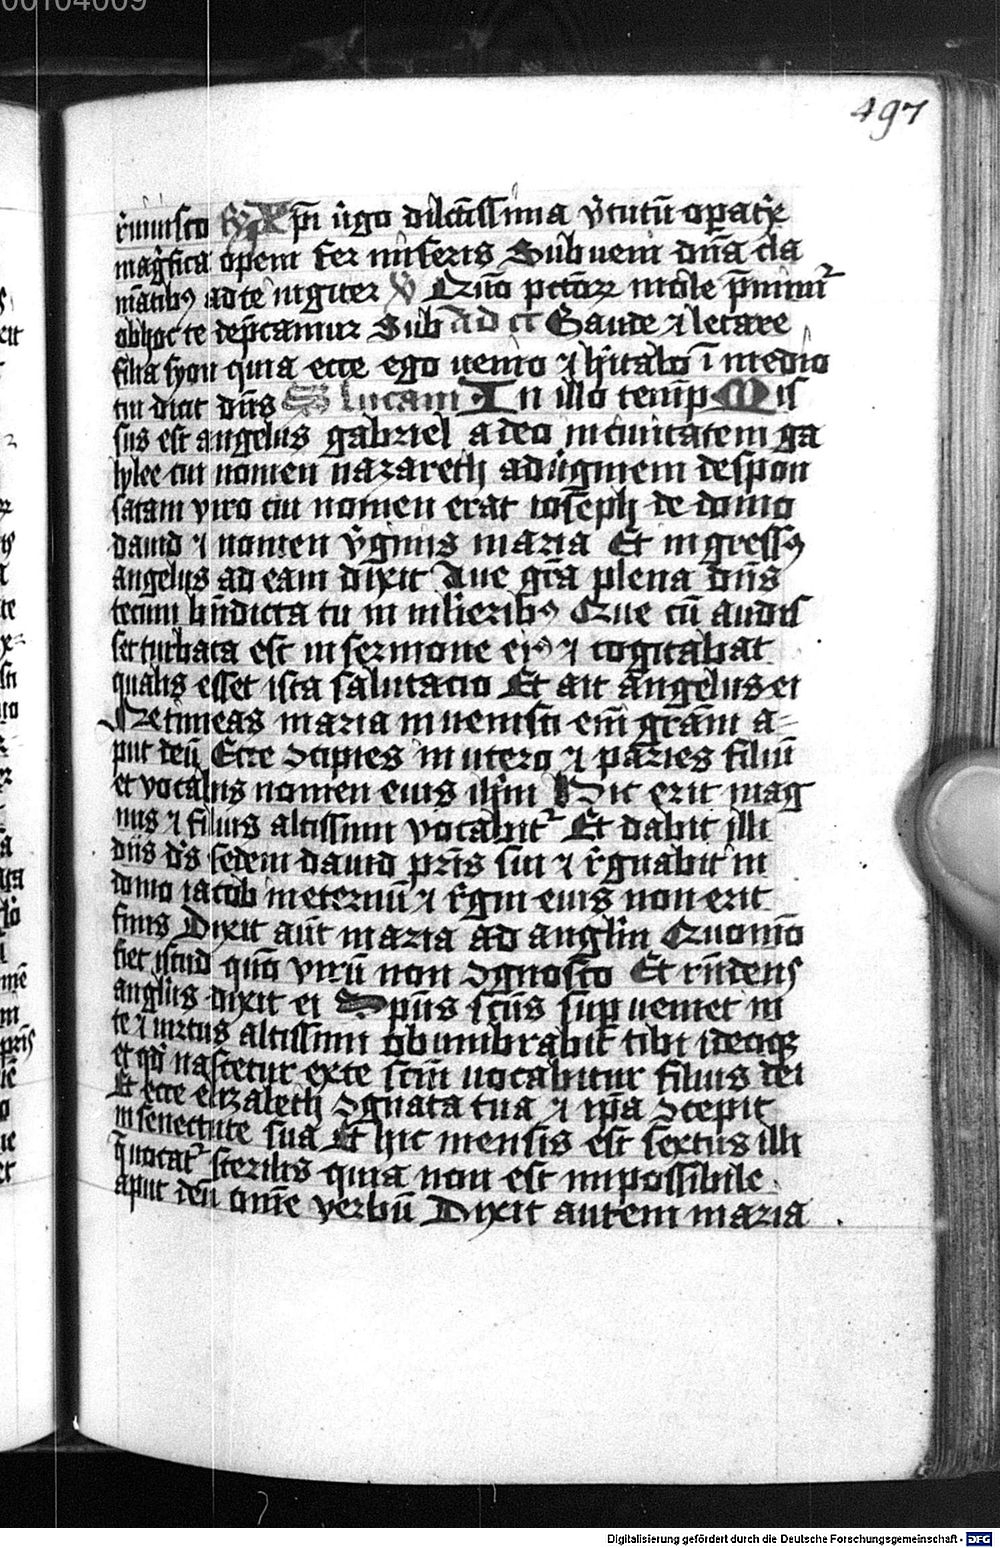 497
r̄miisco R̄ Xp̄i v̄go dilc̄issima v̄tutū opat̄x
mag̅fica opem fer miseris Subueni dn̄a cla
mātibꝰ ad te iugiter V̄ Qm̄ pctōꝝ mole p̄mimur
ob hoc te dep̄camur Sub ad ct Gaude ⁊ letare
filia syon quia ecce ego uenio ⁊ hītabo ī medio
tui dicit dn̄s S lucam In illo temp̄ Mis
sus est angelus gabriel a deo in ciuitatem ga
lylee cui nomen nazareth ad v̄ginem despon
satam viro cui nomen erat ioseph de domo
dauid ⁊ nomen v̄ginis maria Et ingressꝰ
angelus ad eam dixit Aue gr̄a plena dn̄s
tecum bn̄dicta tu in mlieribꝰ Que cū audis
set turbata est in sermone eiꝰ ⁊ cogitabat
qualis esset ista salutacio Et ait angelus ei
Ne timeas maria inuenisti em̄ grām a=
put deū Ecce ɔcipies in utero ⁊ paries filiū
et vocabis nomen eius ihm̄ Hic erit mag
nus ⁊ filius altissimi vocabit̄ Et dabit illi
dn̄s ds̄ sedem dauid pr̄is sui ⁊ r̄gnabit in
domo iacob in eternū ⁊ r̄gni eius non erit
finis Dixit aūt maria ad angl̄m Quomō
fiet istud qm̄ virū non ɔgnosco Et r̄ndens
angl̄us dixit ei Spūs scūs sup ueniet in
te ⁊ uirtus altissimi obumbrabit tibi ideoqꝫ
et qd̄ nascetur ex te scm̄ uocabitur filius dei
Et ecce elizabeth ɔgnata tua ⁊ ip̄a ɔcepit
in senectute sua Et hic mensis est sextus illi
q̄ uocat̄ sterilis quia non est impossibile
aput deū om̄e verbū Dixit autem maria
Digitalisierung gefördert durch die Deutsche Forschungsgemeinschaft - DFG